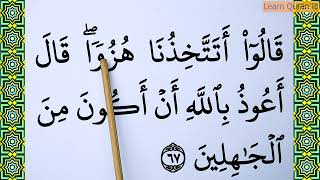 Learn Quran
قَالُوٓا۟ أَتَتَّخِذُنَا هُزُوًۭا ۖ قَالَ
أَعُوذُ بِٱللَّهِ أَنْ أَكُونَ مِنَ
ٱلْجَـٰهِلِينَ ٦٧